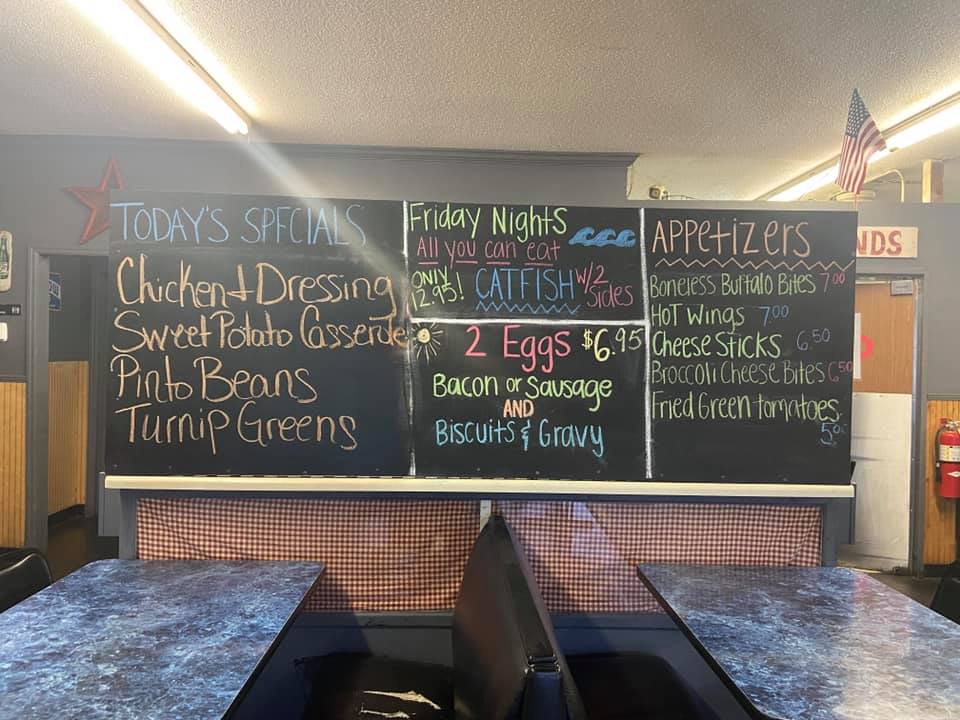 TODAY'S SPECIALS
Chicken & Dressing
Sweet Potato Casserole
Pinto Beans
Turnip Greens
Friday Nights
All you can eat
ONLY 12.95!
CATFISH
W/2 Sides
2 Eggs $6.95
Bacon or Sausage
AND
Biscuits & Gravy
APPEtiZERS
Boneless Buffalo Bites 7.00
HOT Wings 7.00
Cheese Sticks 6.50
Broccoli Cheese Bites 6.50
Fried Green tomatoes
5.00
NDS